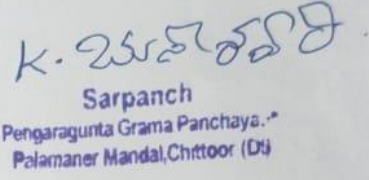 K. భువనేశ్వరి
Sarpanch
Pengaragunta Grama Panchaya..
Palamaner Mandal,Chittoor (Dt)